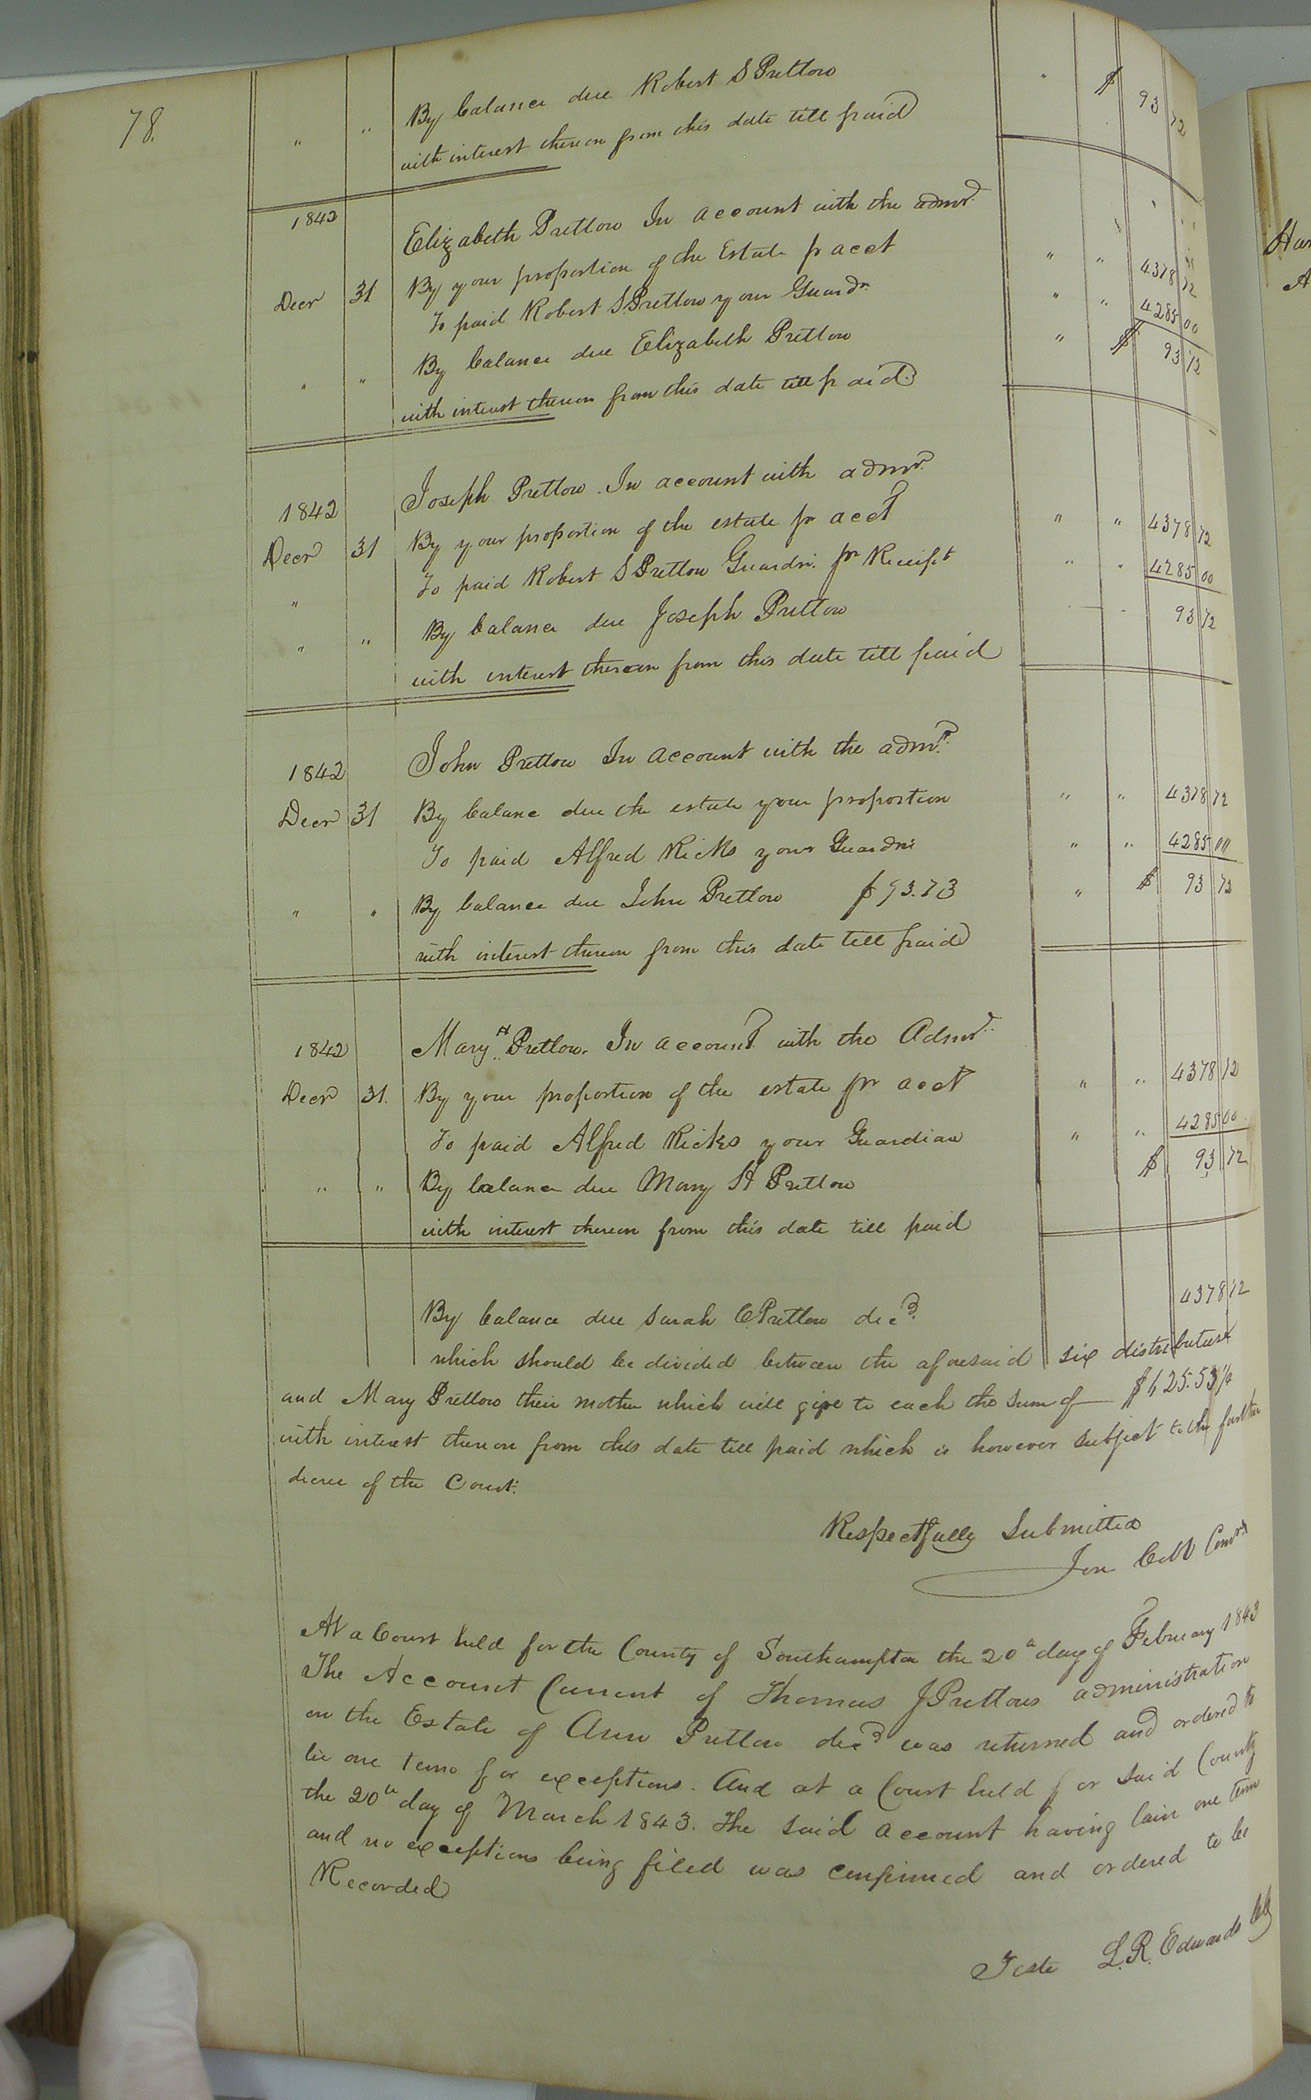 78.
" " By balance due Robert S Pretlow " $ 93 72
with interest thereon from this date till paid
1842 Elizabeth Pretlow In account with the admr.
By your proportion of the Estate pr acct " " 4378 72
Decr 31 To paid Robert S. Pretlow your Guardn. " " 4285 00
" " By balance due Elizabeth Pretlow " $ 93 72
with interest thereon from this date till paid.
1842 Joseph Pretlow. In account with admr.
Decr 31 By your proportion of the estate pr acct " " 4378 72
" To paid Robert S Pretlow Guardn. pr Receipt " " 4285 00
" " By balance due Joseph Pretlow 93 72
with interest thereon from this date till paid
1842 John Pretlow In account with the admr.
Decr 31 By balance due the estate your proportion " " 4378 72
To paid Alfred Ricks your Guardn " " 4285 00
" " By balance due John Pretlow $93.73 " $ 93 72
with interest thereon from this date till paid
1842 Mary H. Pretlow. In account with the Admr.
Decr 31. By your proportion of the estate pr acct " " 4378 72
To paid Alfred Ricks your Guardian " " 4285 00.
" " By balance due Mary H Pretlow $ 93 72
with interest thereon from this date till paid
By balance due Sarah C Pretlow decd. 4378 72
which should be divided between the aforesaid six distributees
and Mary Pretlow their mother which will give to each the sum of $625.53
with interest thereon from this date till paid which is however subject to the further
decree of the Court.
Respectfully Submitted
Cobb Comr
At a Court held for the County of Southampton the 20th day of February 1843
The Account Current of Thomas J Pretlows administration
on the Estate of Ann Pretlow decd was returned and ordered to
lie one term for exceptions. And at a Court held for said County
the 20th day of March 1843. The said account having lain one term
and no exceptions being filed was confirmed and ordered to be
Recorded
Teste L. R. Edwards Clk
Har
A